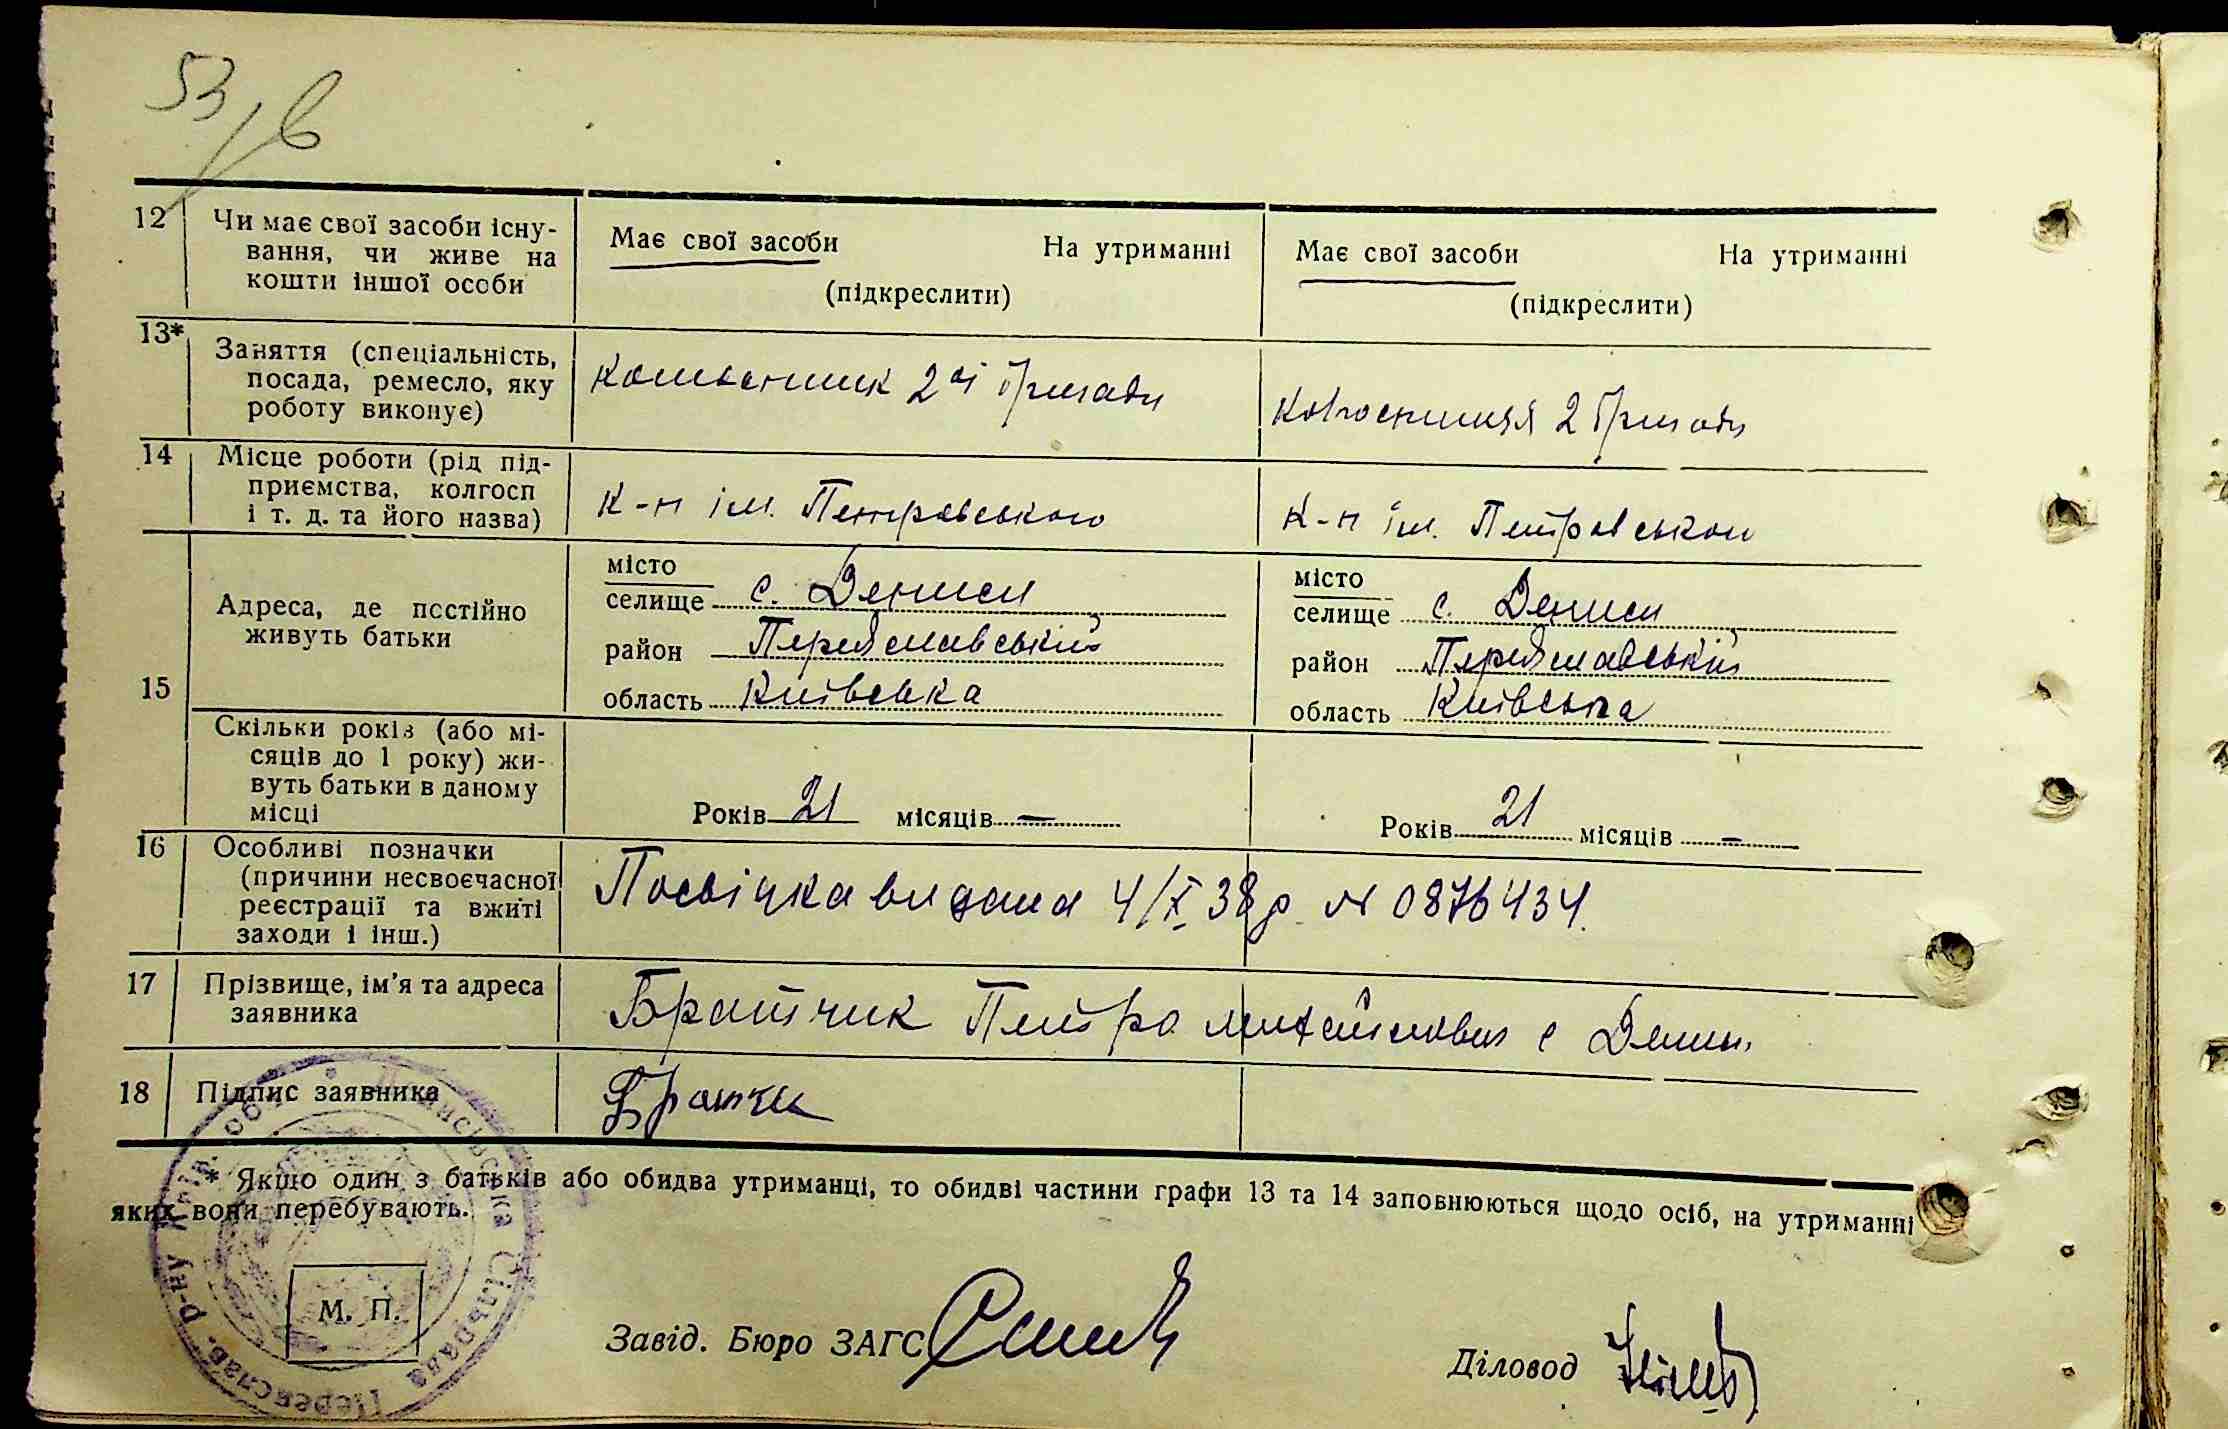 53/6
12 Чи має свої засоби існу-
вання, чи живе на
кошти іншої особи
Має свої засоби На утриманні
(підкреслити)
Має свої засоби На утриманні
(підкреслити)
13* Заняття (спеціальність,
посада, ремесло, яку
роботу виконує)
2ої бригади
колгоспниця 2 бригади
14 Місце роботи (рід під-
приємства, колгосп
і т. д. та його назва)
к-п ім. Петровського
к-п ім. Петровського
15 Адреса, де постійно
живуть батьки
місто
селище с. Дениси
район Переяславський
область Київська
місто
селище с. Дениси
район Переяславський
область Київська
Скільки років (або мі-
сяців до 1 року) жи-
вуть батьки в даному
місці
Років 21 місяців —
Років 21 місяців —
16 Особливі позначки
(причини несвоєчасної
реєстрації та вжиті
заходи і інш.)
видана 4/X 38 р. № 0876434.
17 Прізвище, ім'я та адреса
заявника
Братчик Петро с
18 Підпис заявника
* Якщо один з батьків або обидва утриманці, то обидві частини графи 13 та 14 заповнюються щодо осіб, на утриманні
яких вони перебувають.
М. П.
Завід. Бюро ЗАГС
Діловод
сільрада Переяслав. р-ну